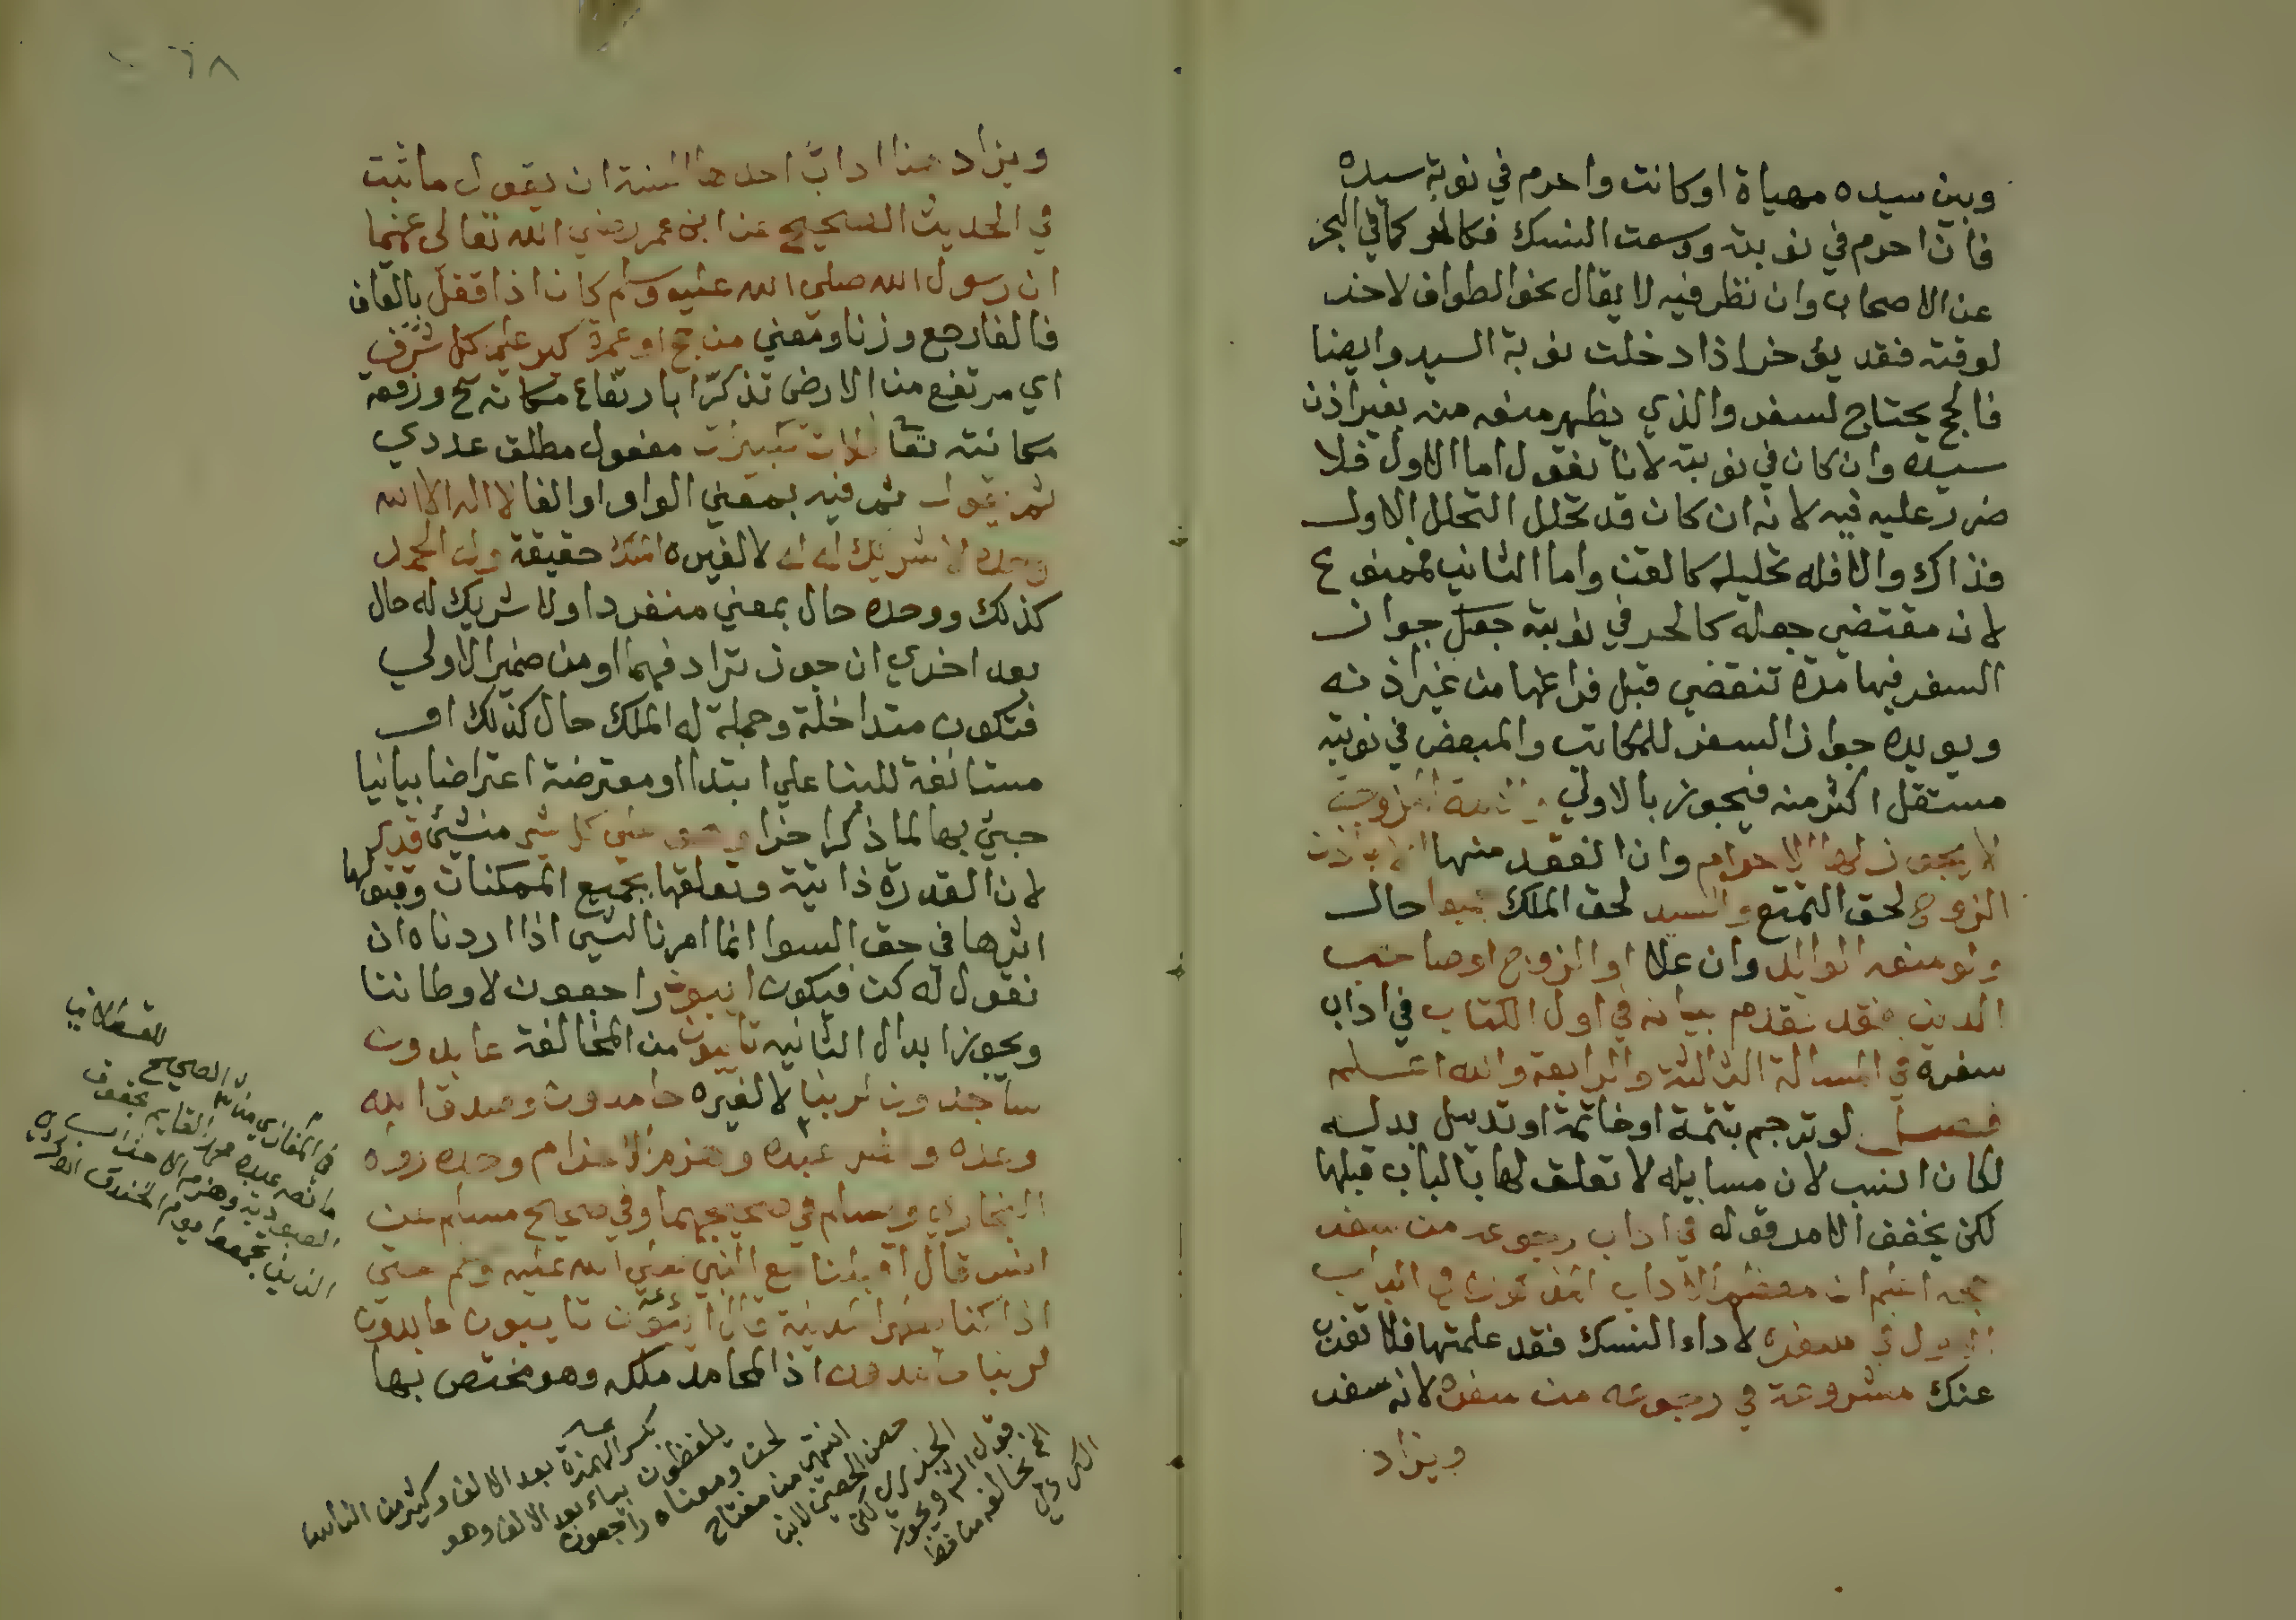 وبين سيده مهياة او كانت واحرم في نوبة سيده
فان احرم في نوبته ووسعت النسك فكالحر كما في البحر
عن الاصحاب وان نظر فيه لا يقال نحو الطواف لا حد
لوقته فقد يؤخر اذا دخلت نوبة السيد وايضا
فالحج يحتاج لسفر والذي يظهر منعه منه بغير اذن
سيده وان كان في نوبته لانا نقول اما الاول فلا
ضرر عليه فيه لانه ان كان قد تحلل التحلل الاول
فذاك والا فله تحليله كالقن واما الثاني فممنوع
لان مقتضي جعله كالحر في نوبته جعل جواز
السفر فيها مدة تنقضي قبل فراغها من غير اذنه
ويويده جواز السفر للمكاتب والمبعض في نوبته
مستقل اكثر منه فيجوز بالاولي الزوجة
لا يجوز لها الاحرام وان انعقد منها الا باذن
الزوج لحق التمتع والسيد لحق الملك حال
ولو منعه الوالد وان علا او الزوج او صاحب
الدين فقد تقدم بيانه في اول الكتاب في اداب
سفره في المسالة الثالثة والرابعة والله اعلم
فصل لو ترجم بتتمة او خاتمة او تذييل بدله
لكان انسب لان مسايله لا تعلق لها بالباب قبلها
لكن يخفف الامر قوله في اداب رجوعه من سفر
حجه اعلم ان معظم الاداب المذكورة في الباب
الاول في سفره لاداء النسك فقد علمتها فلا تغب
عنك مشروعة في رجوعه من سفره لانه سفر
ويزاد
ويزاد هنا ادابا احدها السنة ان يقول ما ثبت
في الحديث الصحيح عن ابن عمر رضي الله تعالى عنهما
ان رسول الله صلي الله عليه وسلم كان اذا قفل بالقاف
فالفا رجع وزنا ومعني من حج او عمرة كبر علي كل شرف
اي مرتفع من الارض تذكرا بارتفاع مكانه ورفعة
مكانته تعا ثلاث تكبيرات مفعول مطلق عددي
ثم يقول ثم فيه بمعني الواو او الفا لا اله الا الله
وحده لا شريك له له لا لغيره الملك حقيقة وله الحمد
كذلك ووحده حال بمعني منفردا ولا شريك له حال
بعد اخري ان جوز ترادفهما او من ضمير الاولي
فتكون متداخلة وجملة له الملك حال كذلك او
مستانفة للبنا علي ابتدا او معترضة اعتراضا بيانيا
جيئ بها لما ذكر اخرا وهو علي كل شي منشيئ قدير
لان القدرة ذاتية وتعلقها بجميع الممكنات وقبولها
اثرها في حق السوا انما امرنا لشي اذا اردناه ان
نقول له كن فيكون ايبون راجعون لاوطاننا
ويجوز ابدال الثانيه تايبون من المخالفة عابدون
ساجدون لربنا لا لغيره حامدون وصدق الله
وعده ونصر عبده وهزم الاحزاب وحده رواه
البخاري ومسلم في صحيحيهما وفي صحيح مسلم عن
انس قال اقبلنا مع النبي صلي الله عليه وسلم حتي
اذا كنا بظهر المدينة قال ايبون تايبون عابدون
لربنا حامدون اذ المحامد ملكه وهو مختص بها
للقسطلاني
في المغازي من الصحيح
ما نصه عبده محمد القايم بحقوق
العبودية وهزم الاحزاب
الذين تجمعوا يوم الخندق
بكسر الهمزة بعد الالف وكثير من الناس
يلفظون بياء بعد الالف وهو
لحن ومعناه راجعون
انتهي من مفتاح
حصن الحصين لابن
الجزري لكن
قول الشم ويجوز
الخ يخالفه